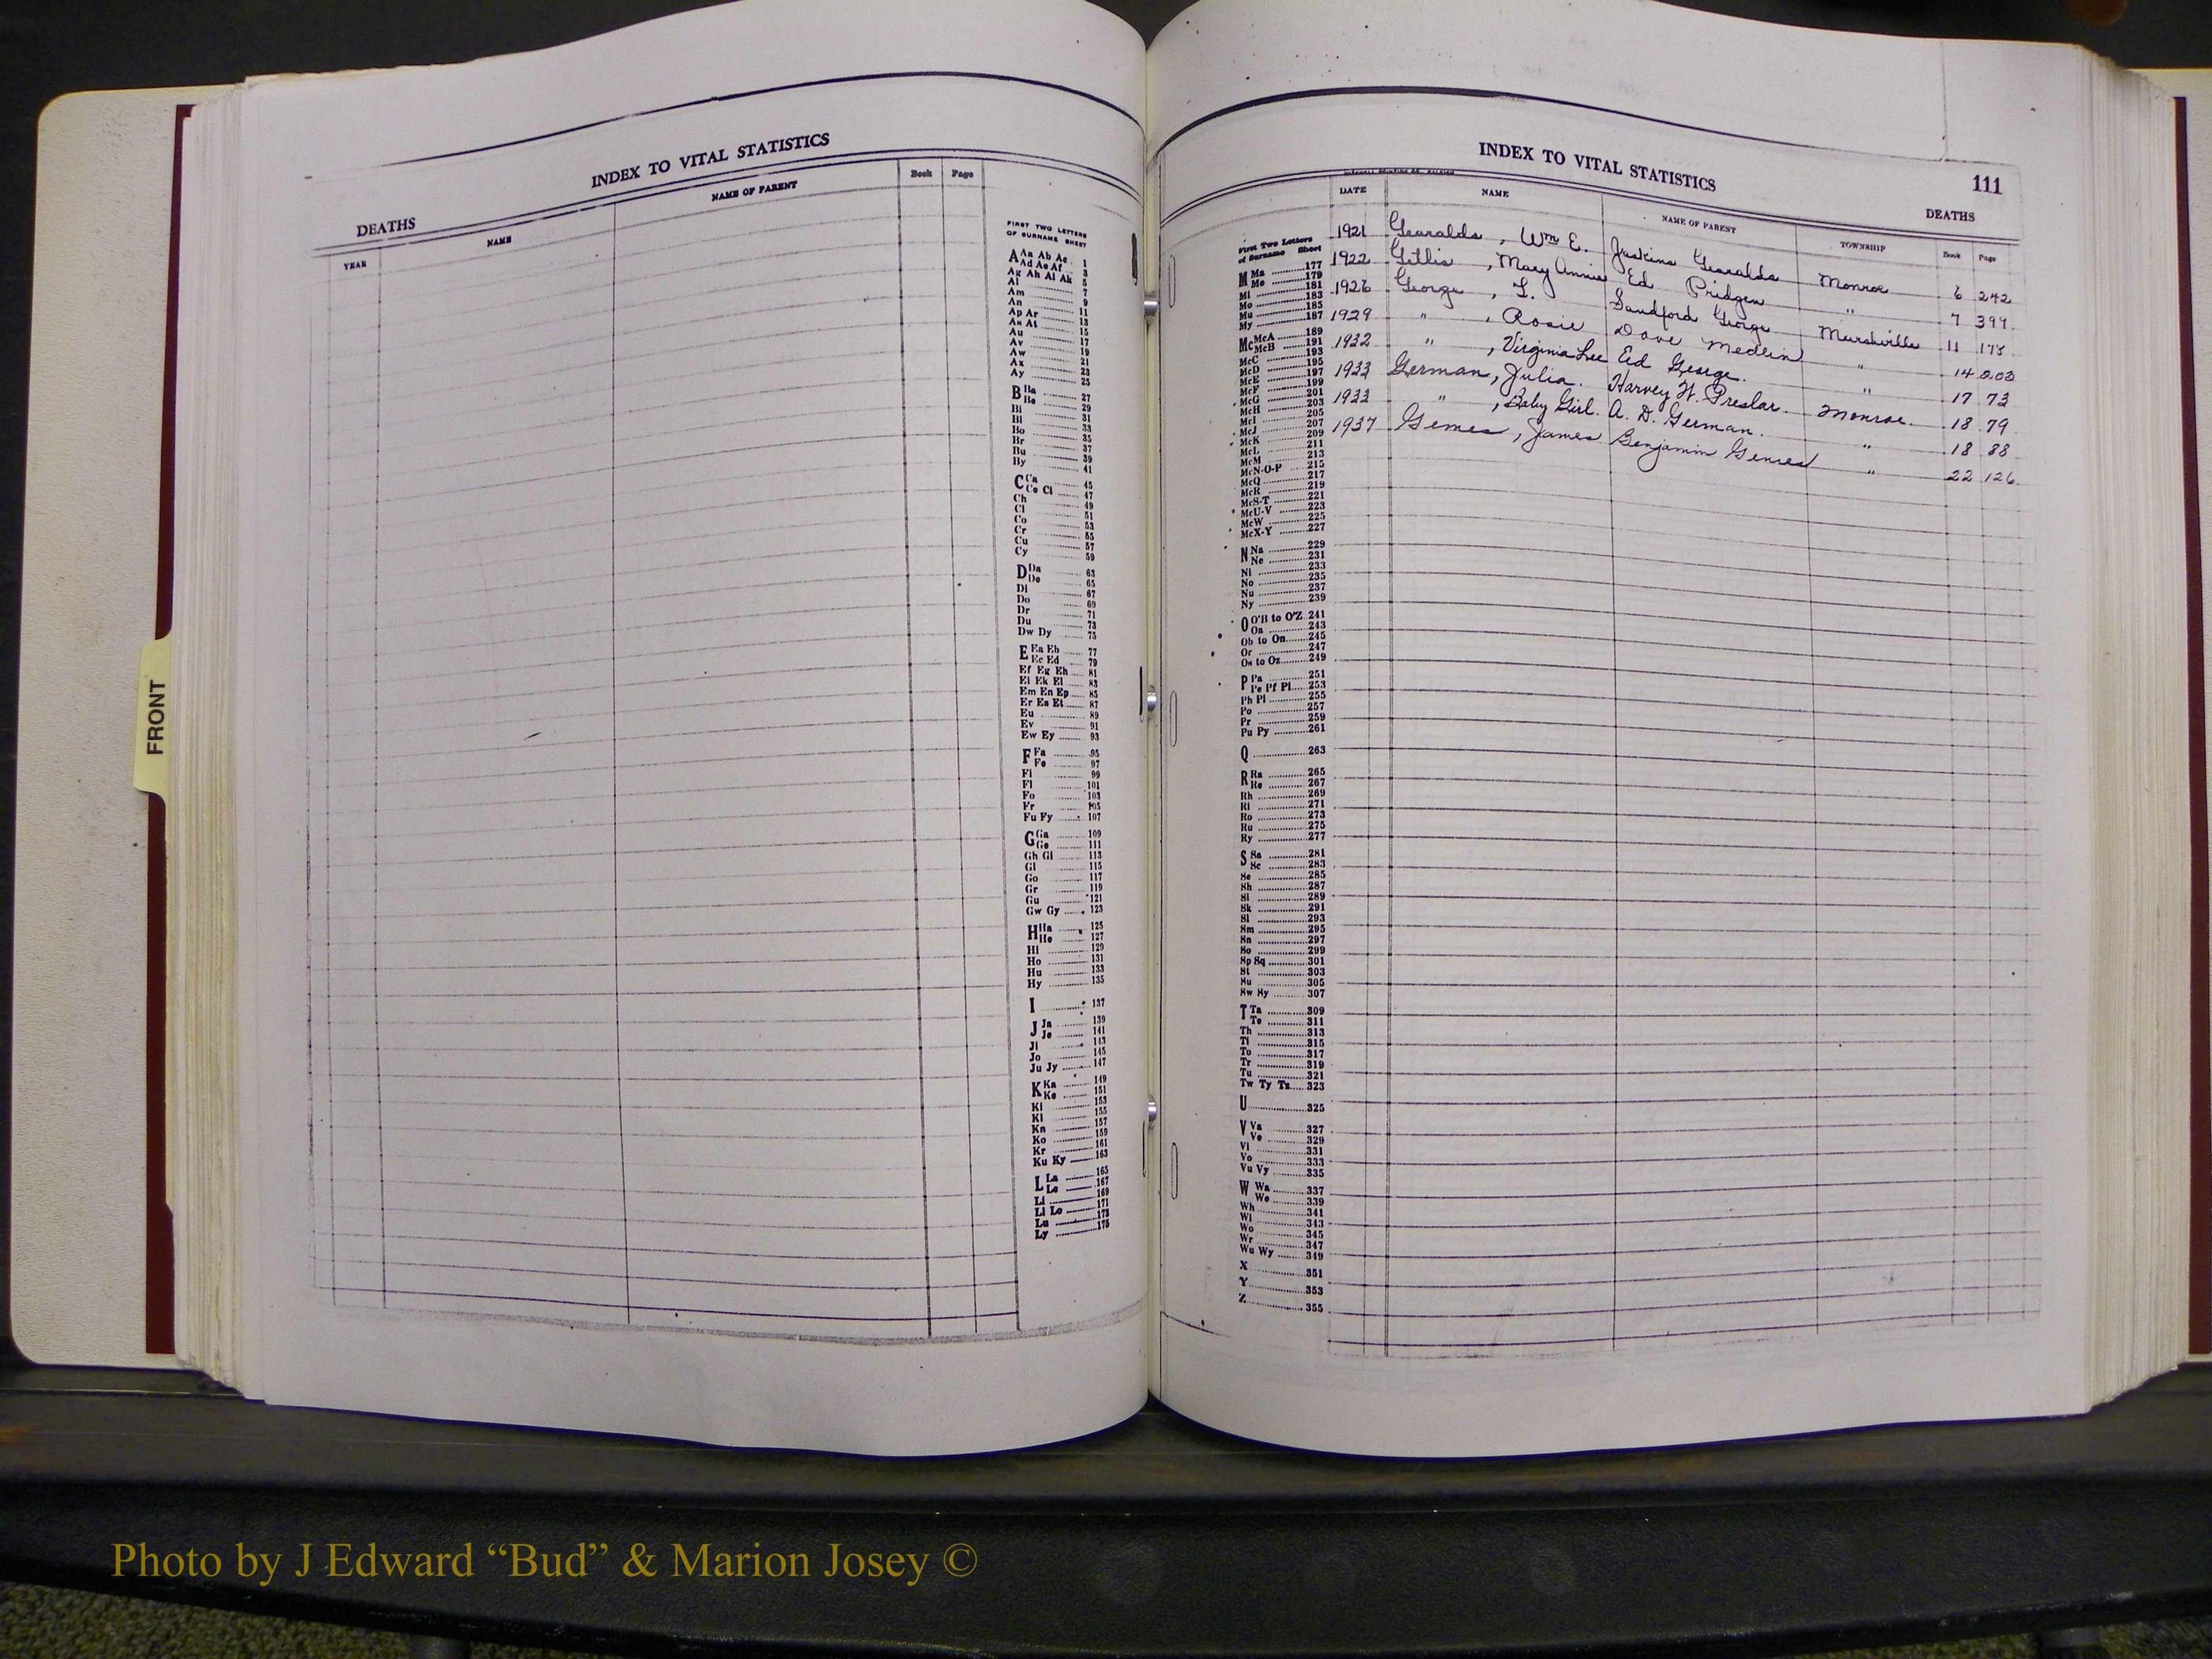 FRONT
INDEX TO VITAL STATISTICS
DEATHS
YEAR NAME NAME OF PARENT Book Page
FIRST TWO LETTERS
OF SURNAME SHEET
A Aa Ab Ac 1
Ad Ae Af 3
Ag Ah Ai Ak 5
Al 7
Am 9
An 11
Ap Ar 13
As At 15
Au 17
Av 19
Aw 21
Ax 23
Ay 25
B Ba 27
Be 29
Bi 31
Bl 33
Bo 35
Br 37
Bu 39
By 41
C Ca 45
Ce Ci 47
Ch 49
Cl 51
Co 53
Cr 55
Cu 57
Cy 59
D Da 63
De 65
Di 67
Do 69
Dr 71
Du 73
Dw Dy 75
E Ea Eb 77
Ec Ed 79
Ef Eg Eh 81
Ei Ek El 83
Em En Ep 85
Er Es Et 87
Eu 89
Ev 91
Ew Ey 93
F Fa 95
Fe 97
Fi 99
Fl 101
Fo 103
Fr 105
Fu Fy 107
G Ga 109
Ge 111
Gh Gi 113
Gl 115
Go 117
Gr 119
Gu 121
Gw Gy 123
H Ha 125
He 127
Hi 129
Ho 131
Hu 133
Hy 135
I 137
J Ja 139
Je 141
Ji 143
Jo 145
Ju Jy 147
K Ka 149
Ke 151
Ki 153
Kl 155
Kn 157
Ko 159
Kr 161
Ku Ky 163
L La 165
Le 167
Li 169
Ll Lo 171
Lu 173
Ly 175
INDEX TO VITAL STATISTICS 111
DEATHS
DATE NAME NAME OF PARENT TOWNSHIP Book Page
1921 Gearalds, Wm E. Juskins Gearalds Monroe 6 242
1922 Gettis, Mary Annie Ed Pridgen " 7 397
1926 George, L. Sandford George Marshville 11 175
1929 ", Rosie Dove Medlin " 14 203
1932 ", Virginia Lee Ed George. " 17 73
1933 German, Julia. Harvey H. Preslar. Monroe. 18 79
1933 ", Baby Girl. A. D. German. " 18 88
1937 Gemes, James Benjamin Gemes " 22 126
First Two Letters
of Surname Sheet
M Ma 177
Me 179
Mi 181
Mo 183
Mu 185
My 187
Mc McA 189
McB 191
McC 193
McD 195
McE 197
McF 199
McG 201
McH 203
McI 205
McJ 207
McK 209
McL 211
McM 213
McN-O-P 215
McQ 217
McR 219
McS-T 221
McU-V 223
McW 225
McX-Y 227
N Na 229
Ne 231
Ni 233
No 235
Nu 237
Ny 239
O O'B to O'Z 241
Oa 243
Ob to On 245
Or 247
Os to Oz 249
P Pa 251
Pe Pf Pi 253
Ph Pl 255
Po 257
Pr 259
Pu Py 261
Q 263
R Ra 265
Re 267
Rh 269
Ri 271
Ro 273
Ru 275
Ry 277
S Sa 281
Sc 283
Se 285
Sh 287
Si 289
Sk 291
Sl 293
Sm 295
Sn 297
So 299
Sp Sq 301
St 303
Su 305
Sw Sy 307
T Ta 309
Te 311
Th 313
Ti 315
To 317
Tr 319
Tu 321
Tw Ty Tz 323
U 325
V Va 327
Ve 329
Vi 331
Vo 333
Vu Vy 335
W Wa 337
We 339
Wh 341
Wi 343
Wo 345
Wr 347
Wu Wy 349
X 351
Y 353
Z 355
Photo by J Edward “Bud” & Marion Josey ©